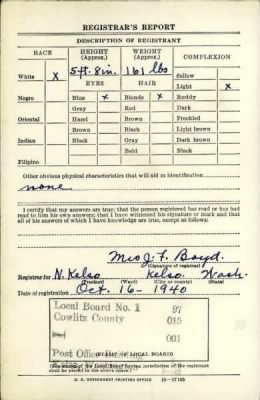 REGISTRAR'S REPORT
DESCRIPTION OF REGISTRANT
RACE HEIGHT (Approx.) WEIGHT (Approx.) COMPLEXION
White X 5 ft. 8 in. 161 lbs Sallow
EYES HAIR Light X
Negro Blue X Blonde X Ruddy
Gray Red Dark
Oriental Hazel Brown Freckled
Brown Black Light brown
Indian Black Gray Dark brown
Bald Black
Filipino
Other obvious physical characteristics that will aid in identification
none
I certify that my answers are true; that the person registered has read or has had
read to him his own answers; that I have witnessed his signature or mark and that
all of his answers of which I have knowledge are true, except as follows:
J. F. Boyd.
(Signature of registrar)
Registrar for N. Kelso Kelso. Wash.
(Precinct) (Ward) (City or county) (State)
Date of registration Oct. 16 - 1940
Local Board No. 1 97
Cowlitz County 015
001
Post Office
(STAMP OF LOCAL BOARD)
(The stamp of the Local Board having jurisdiction of the registrant
shall be placed in the above space.)
U. S. GOVERNMENT PRINTING OFFICE 16—17105